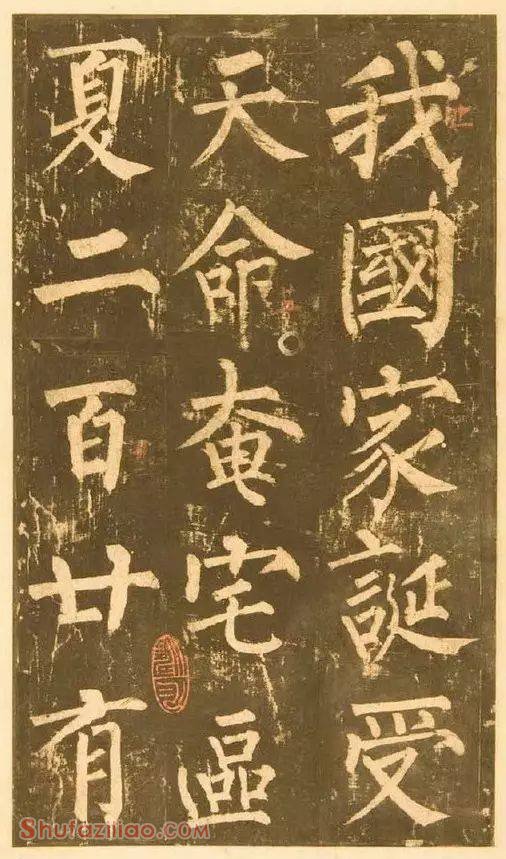 我國家誕受
天命奄宅區
夏二百廿有
Shufaziliao.com